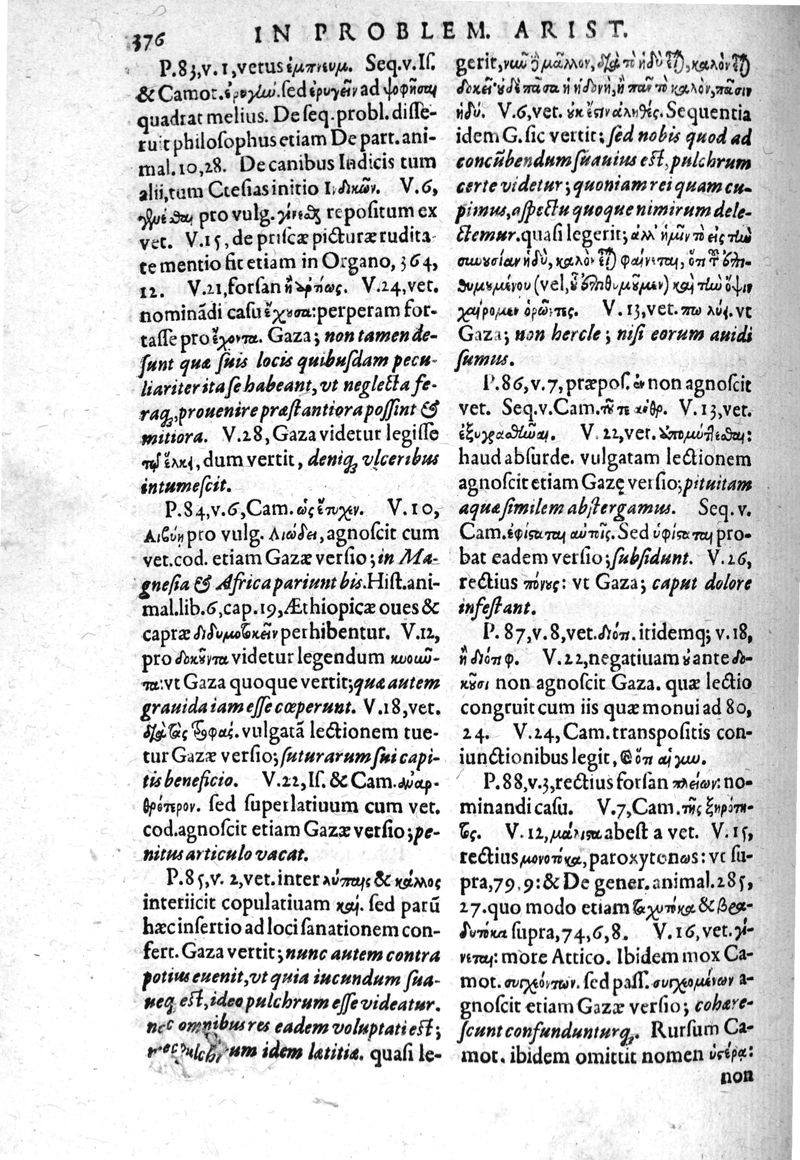 376
IN PROBLEM. ARIST.
P. 83, v. 1, vetus ἐμπνευμ. Seq. v. Is.
& Camot. sed ἐρυγεῖν ad ψοφῆσαι
quadrat melius. De seq. probl. disse-
ruit philosophus etiam De part. ani-
mal. 10, 28. De canibus Indicis tum
alii, tum Ctesias initio Ἰνδικῶν. V. 6,
pro vulg. repositum ex
vet. V. 15, de priscæ picturæ rudita-
te mentio fit etiam in Organo, 364,
12. V. 21, forsan V. 24, vet.
nominādi casu ἔχουσα: perperam for-
tasse pro ἔχοντα. Gaza; non tamen de-
sunt quæ suis locis quibusdam pecu-
liariter ita se habeant, vt neglecta fe-
raq;, prouenire præstantiora possint &
mitiora. V. 28, Gaza videtur legisse
τοῖς ἕλκεσι, dum vertit, deniq; vlceribus
intumescit.
P. 84, v. 6, Cam. ὡς ἔτυχεν. V. 10,
Λιβύῃ pro vulg. agnoscit cum
vet. cod. etiam Gazæ versio; in Ma-
gnesia & Africa pariunt bis. Hist. ani-
mal. lib. 6, cap. 19, Æthiopicæ oues &
capræ διδυμοτοκεῖν perhibentur. V. 12,
pro δοκοῦντα videtur legendum κυοῦν-
τα: vt Gaza quoque vertit; quæ autem
grauida iam esse cœperunt. V. 18, vet.
διὰ τὰς vulgatā lectionem tue-
tur Gazæ versio; suturarum sui capi-
tis beneficio. V. 22, Is. & Cam. ἀναρ-
θρότερον. sed superlatiuum cum vet.
cod. agnoscit etiam Gazæ versio; pe-
nitus articulo vacat.
P. 85, v. 2, vet. inter λύπαις & κάλλος
interiicit copulatiuam καὶ. sed parū
hæc insertio ad loci sanationem con-
fert. Gaza vertit; nunc autem contra
potius euenit, vt quia iucundum sua-
ueq; est, ideo pulchrum esse videatur.
nec omnibus res eadem voluptati est;
nec pulchrum idem lætitiæ. quasi le-
gerit, νῦν δὲ μᾶλλον, διὰ τὸ ἡδὺ εἶναι, καλὸν εἶναι
δοκεῖ· οὐδὲ πᾶσα ἡ ἡδονὴ, ἢ πᾶν τὸ καλὸν, πᾶσιν
ἡδύ. V. 6, vet. οὐκ ἔστιν ἀληθὲς. Sequentia
idem G. sic vertit; sed nobis quod ad
concūbendum suauius est, pulchrum
certe videtur; quoniam rei quam cu-
pimus, aspectu quoque nimirum dele-
ctemur. quasi legerit; ἀλλ' ἡμῖν τὸ εἰς τὴν
συνουσίαν ἡδὺ, καλὸν εἶναι φαίνεται, ὅτι τοῦ ἐπι-
θυμουμένου (vel, οὗ ἐπιθυμοῦμεν) καὶ τὴν ὄψιν
χαίρομεν ὁρῶντες. V. 13, vet. vt
Gaza; non hercle; nisi eorum auidi
sumus.
P. 86, v. 7, præpos. ἐν non agnoscit
vet. Seq. v. Cam. V. 13, vet.
V. 22, vet.
haud absurde. vulgatam lectionem
agnoscit etiam Gazę versio; pituitam
aquæ similem abstergamus. Seq. v.
Cam. ἐφίσταται αὐτοῖς. Sed ὑφίσταται pro-
bat eadem versio; subsidunt. V. 26,
rectius πόνους: vt Gaza; caput dolore
infestant.
P. 87, v. 8, vet. διόπ. itidemq; v. 18,
V. 22, negatiuam οὐ ante δο-
κοῦσι non agnoscit Gaza. quæ lectio
congruit cum iis quæ monui ad 80,
24. V. 24, Cam. transpositis con-
iunctionibus legit,
P. 88, v. 3, rectius forsan πλείων: no-
minandi casu. V. 7, Cam. τῆς ξηρότη-
τος. V. 12, μάλιστα abest a vet. V. 15,
rectius μονοτόκα, paroxytonως: vt su-
pra, 79, 9: & De gener. animal. 285,
27. quo modo etiam ταχυτόκα & βρα-
δυτόκα supra, 74, 6, 8. V. 16, vet. γί-
νεται: more Attico. Ibidem mox Ca-
mot. συγχεόντων. sed pass. συγχεομένων a-
gnoscit etiam Gazæ versio; cohære-
scunt confundunturq;. Rursum Ca-
mot. ibidem omittit nomen ὑστέρα:
non